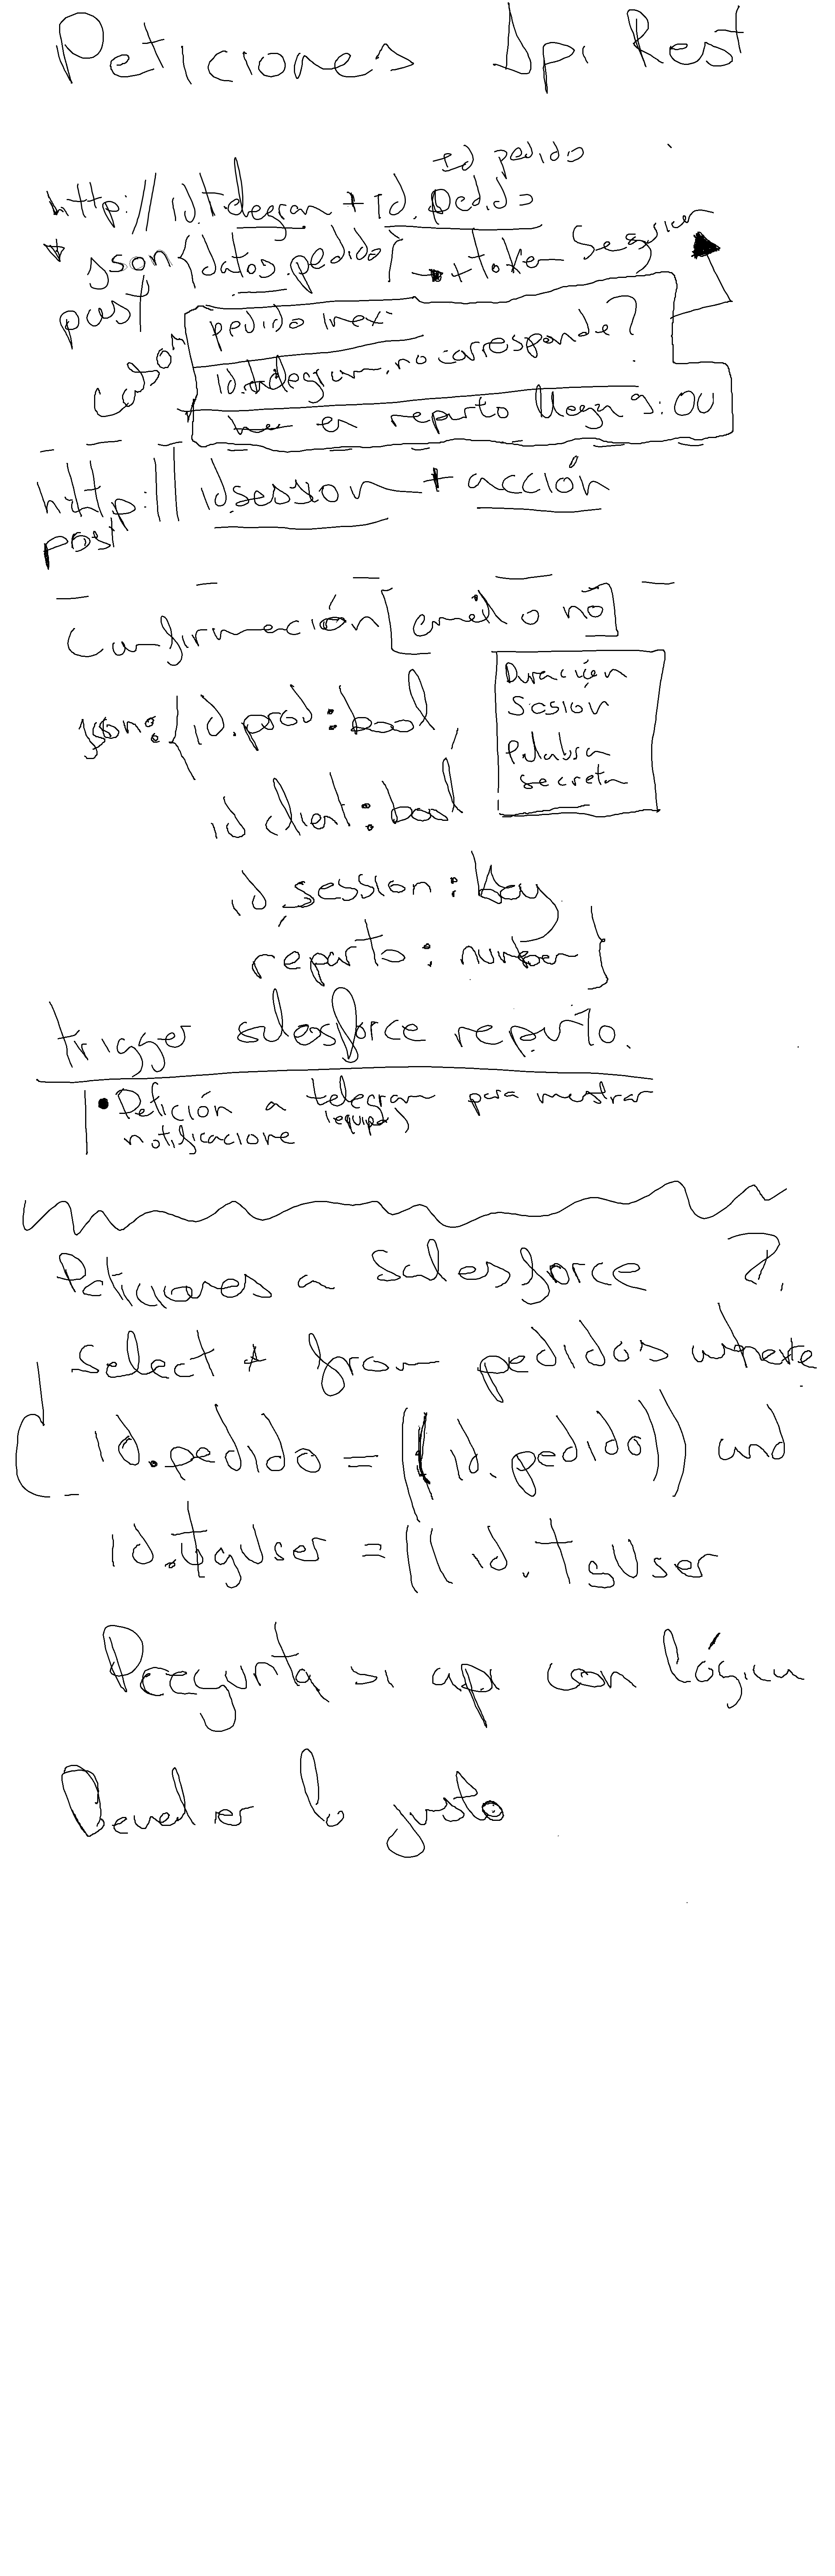 Peticiones Api Rest
Id pedido
http://id.telegram + id.pedido
json{datos.pedido} → + token Session
post
Casos
pedido inex.
id.telegram.no corresponde?
en reparto llega 9:00
http://idsession + acción
post
Confirmación[email o no]
json:{id.prod:bool,
id client:bool
id_session:key
reparto: number}
Duración
Sesion
Palabra
secreta
trigger salesforce reparto.
• Petición a telegram para mostrar
notificacione (equipo)
Peticiones a Salesforce ?.
Select * from pedidos where
id.pedido = ((id.pedido)) and
id.tgUser = ((id.tgUser
Preegunta si api con lógica
Devolver lo justo